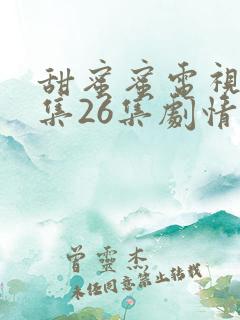 甜蜜蜜電視
集26集劇情
曾靈杰
未任同意禁止轉載